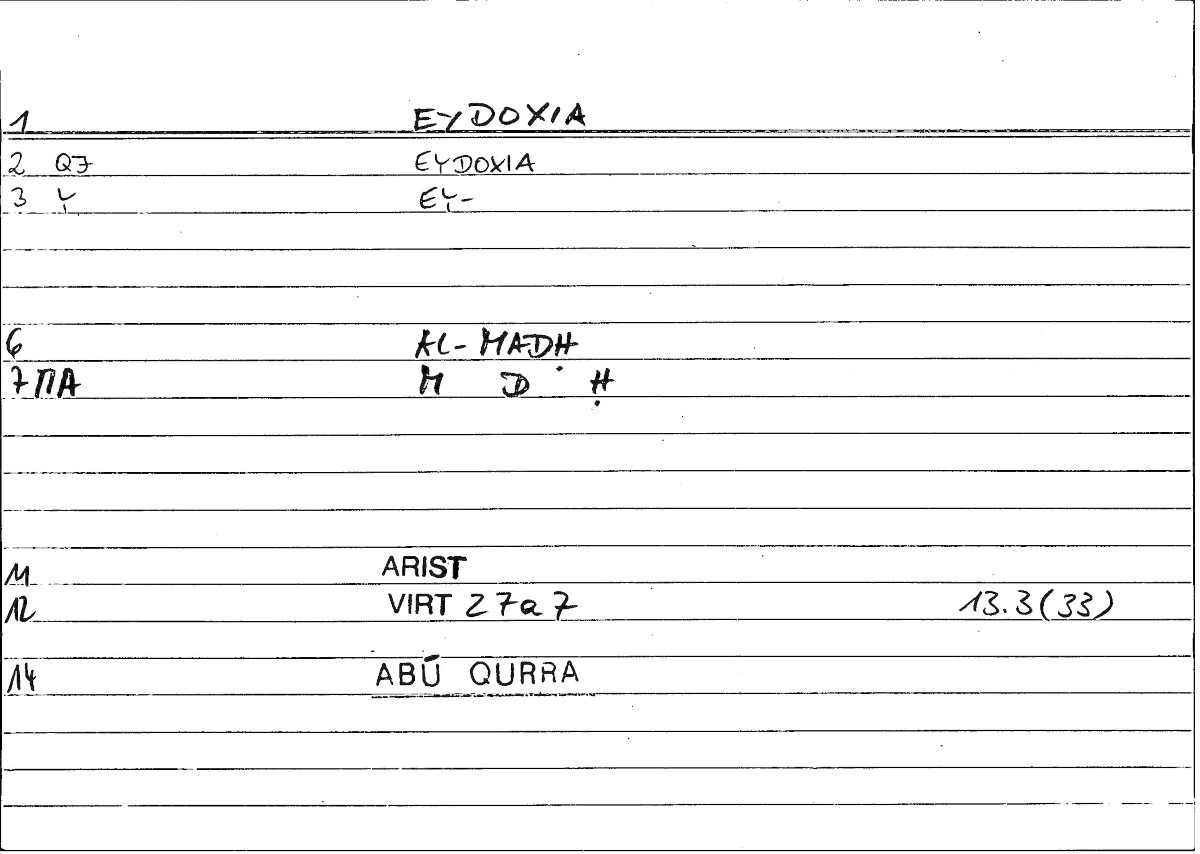 1 EYDOXIA
2 QJ EYDOXIA
3 Y EY-
6 AL-MADḤ
7 ΠA M D Ḥ
11 ARIST
12 VIRT 27a7 13.3(33)
14 ABŪ QURRA